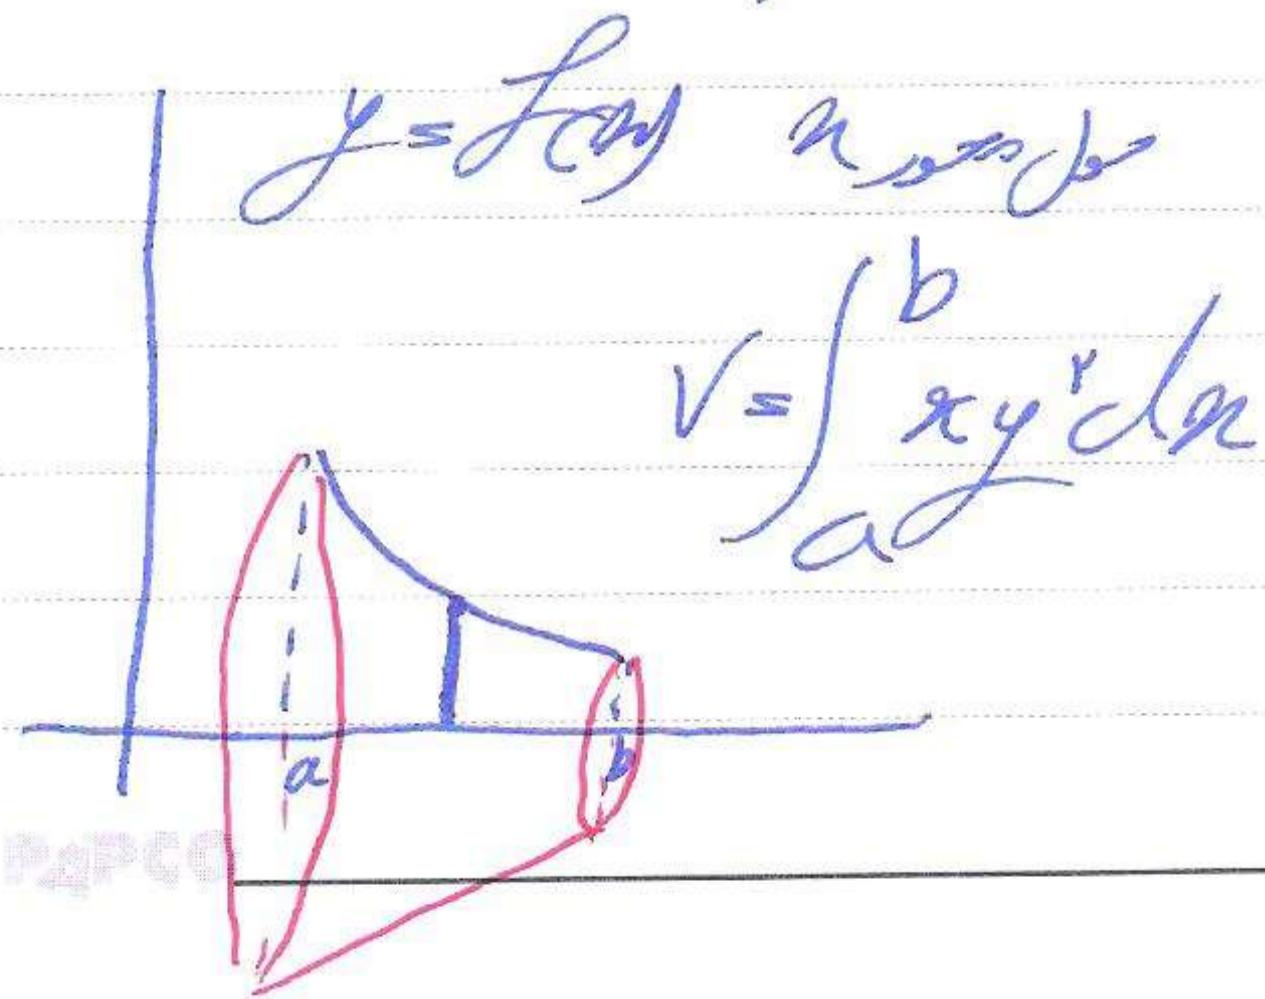 y = f(x) حول محور x
V = ∫_a^b πy^۲ dx
a b
PAPCO